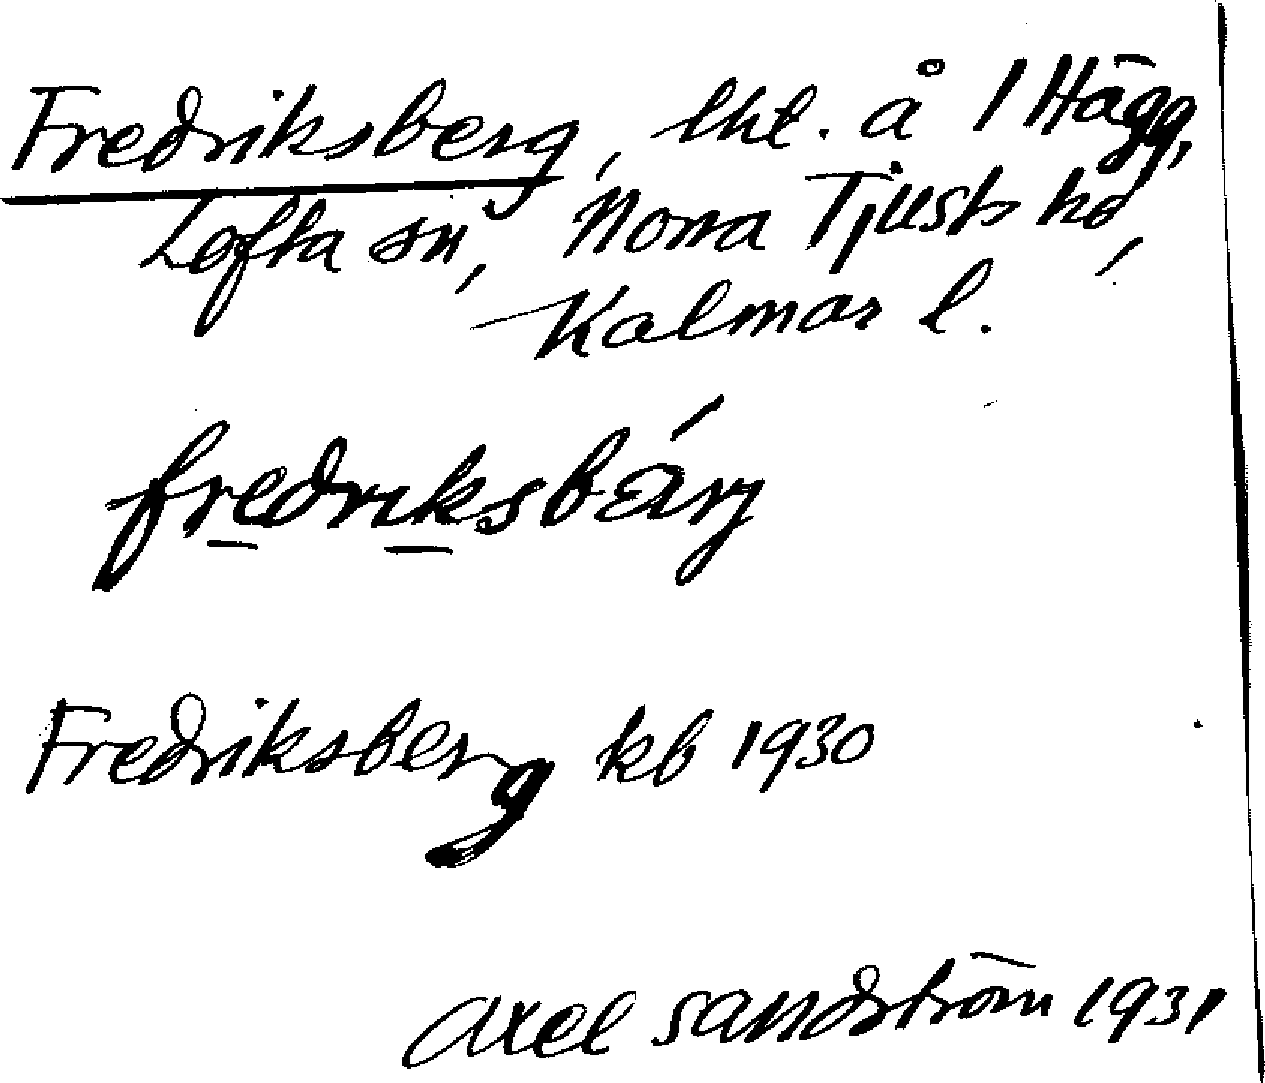 Fredriksberg, lht. å 1 Hägg,
Lofta sn, Norra Tjusts hd,
Kalmar l.
fredriksbärj
Fredriksberg kb 1930
Axel Sandström 1931